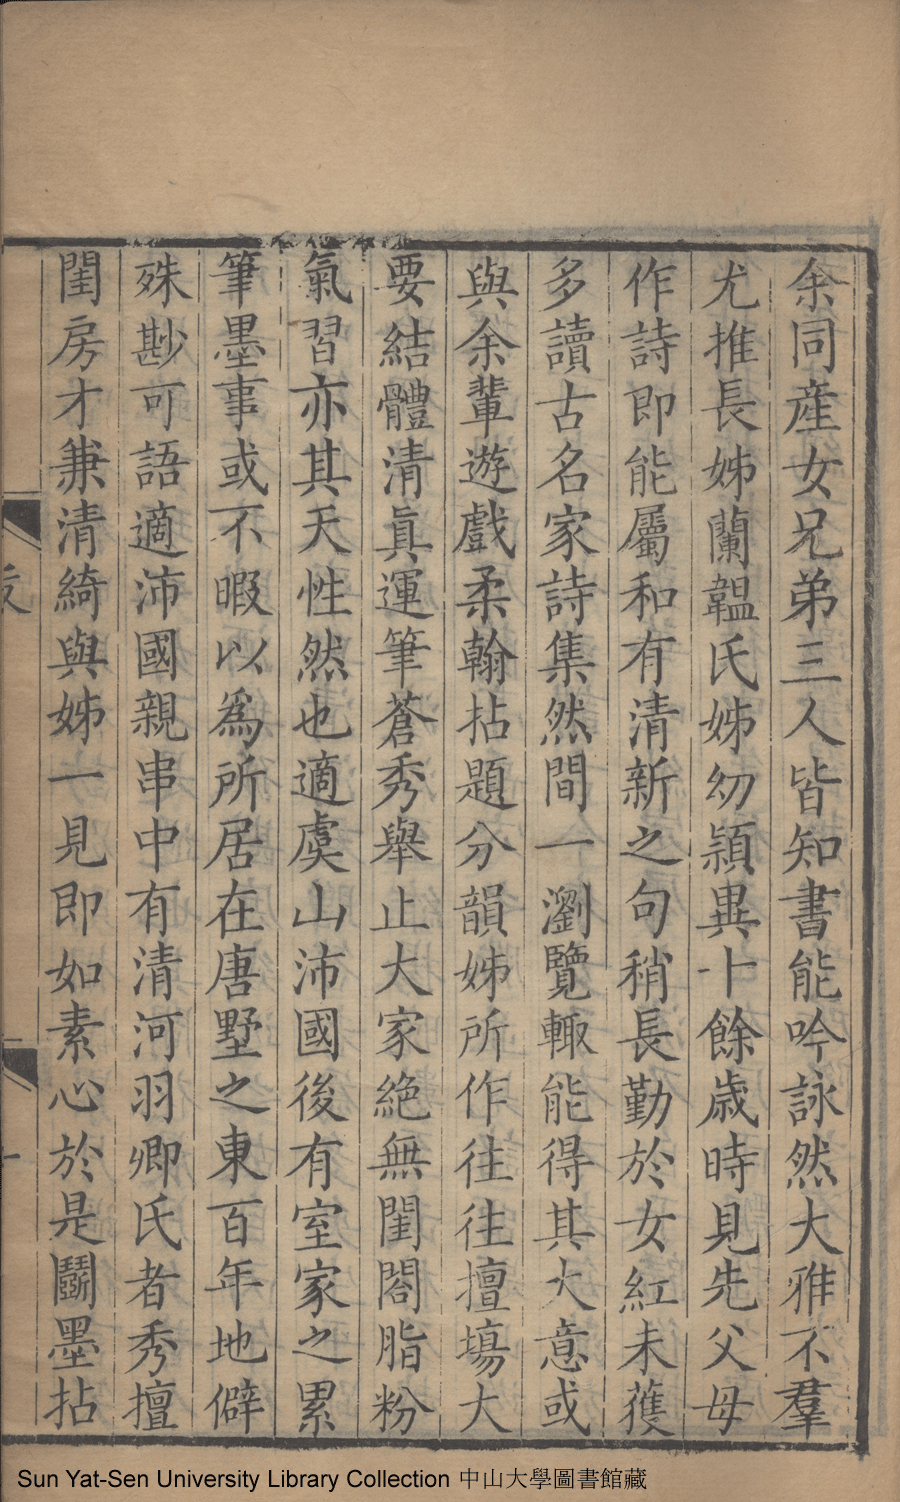 余同產女兄弟三人皆知書能吟詠然大雅不羣
尤推長姊蘭韞氏姊幼穎異十餘歲時見先父母
作詩即能屬和有清新之句稍長勤於女紅未蒦
多讀古名家詩集然間一瀏覽輙能得其大意或
與余輩遊戲柔翰拈題分韻姊所作往往擅塲大
要結體清眞運筆蒼秀舉止大家絶無閨閤脂粉
氣習亦其天性然也適虞山沛國後有室家之累
筆墨事或不暇以爲所居在唐墅之東百年地僻
殊尠可語適沛國親串中有清河羽卿氏者秀擅
閨房才兼清綺與姊一見即如素心於是鬬墨拈
一
Sun Yat-Sen University Library Collection 中山大學圖書館藏